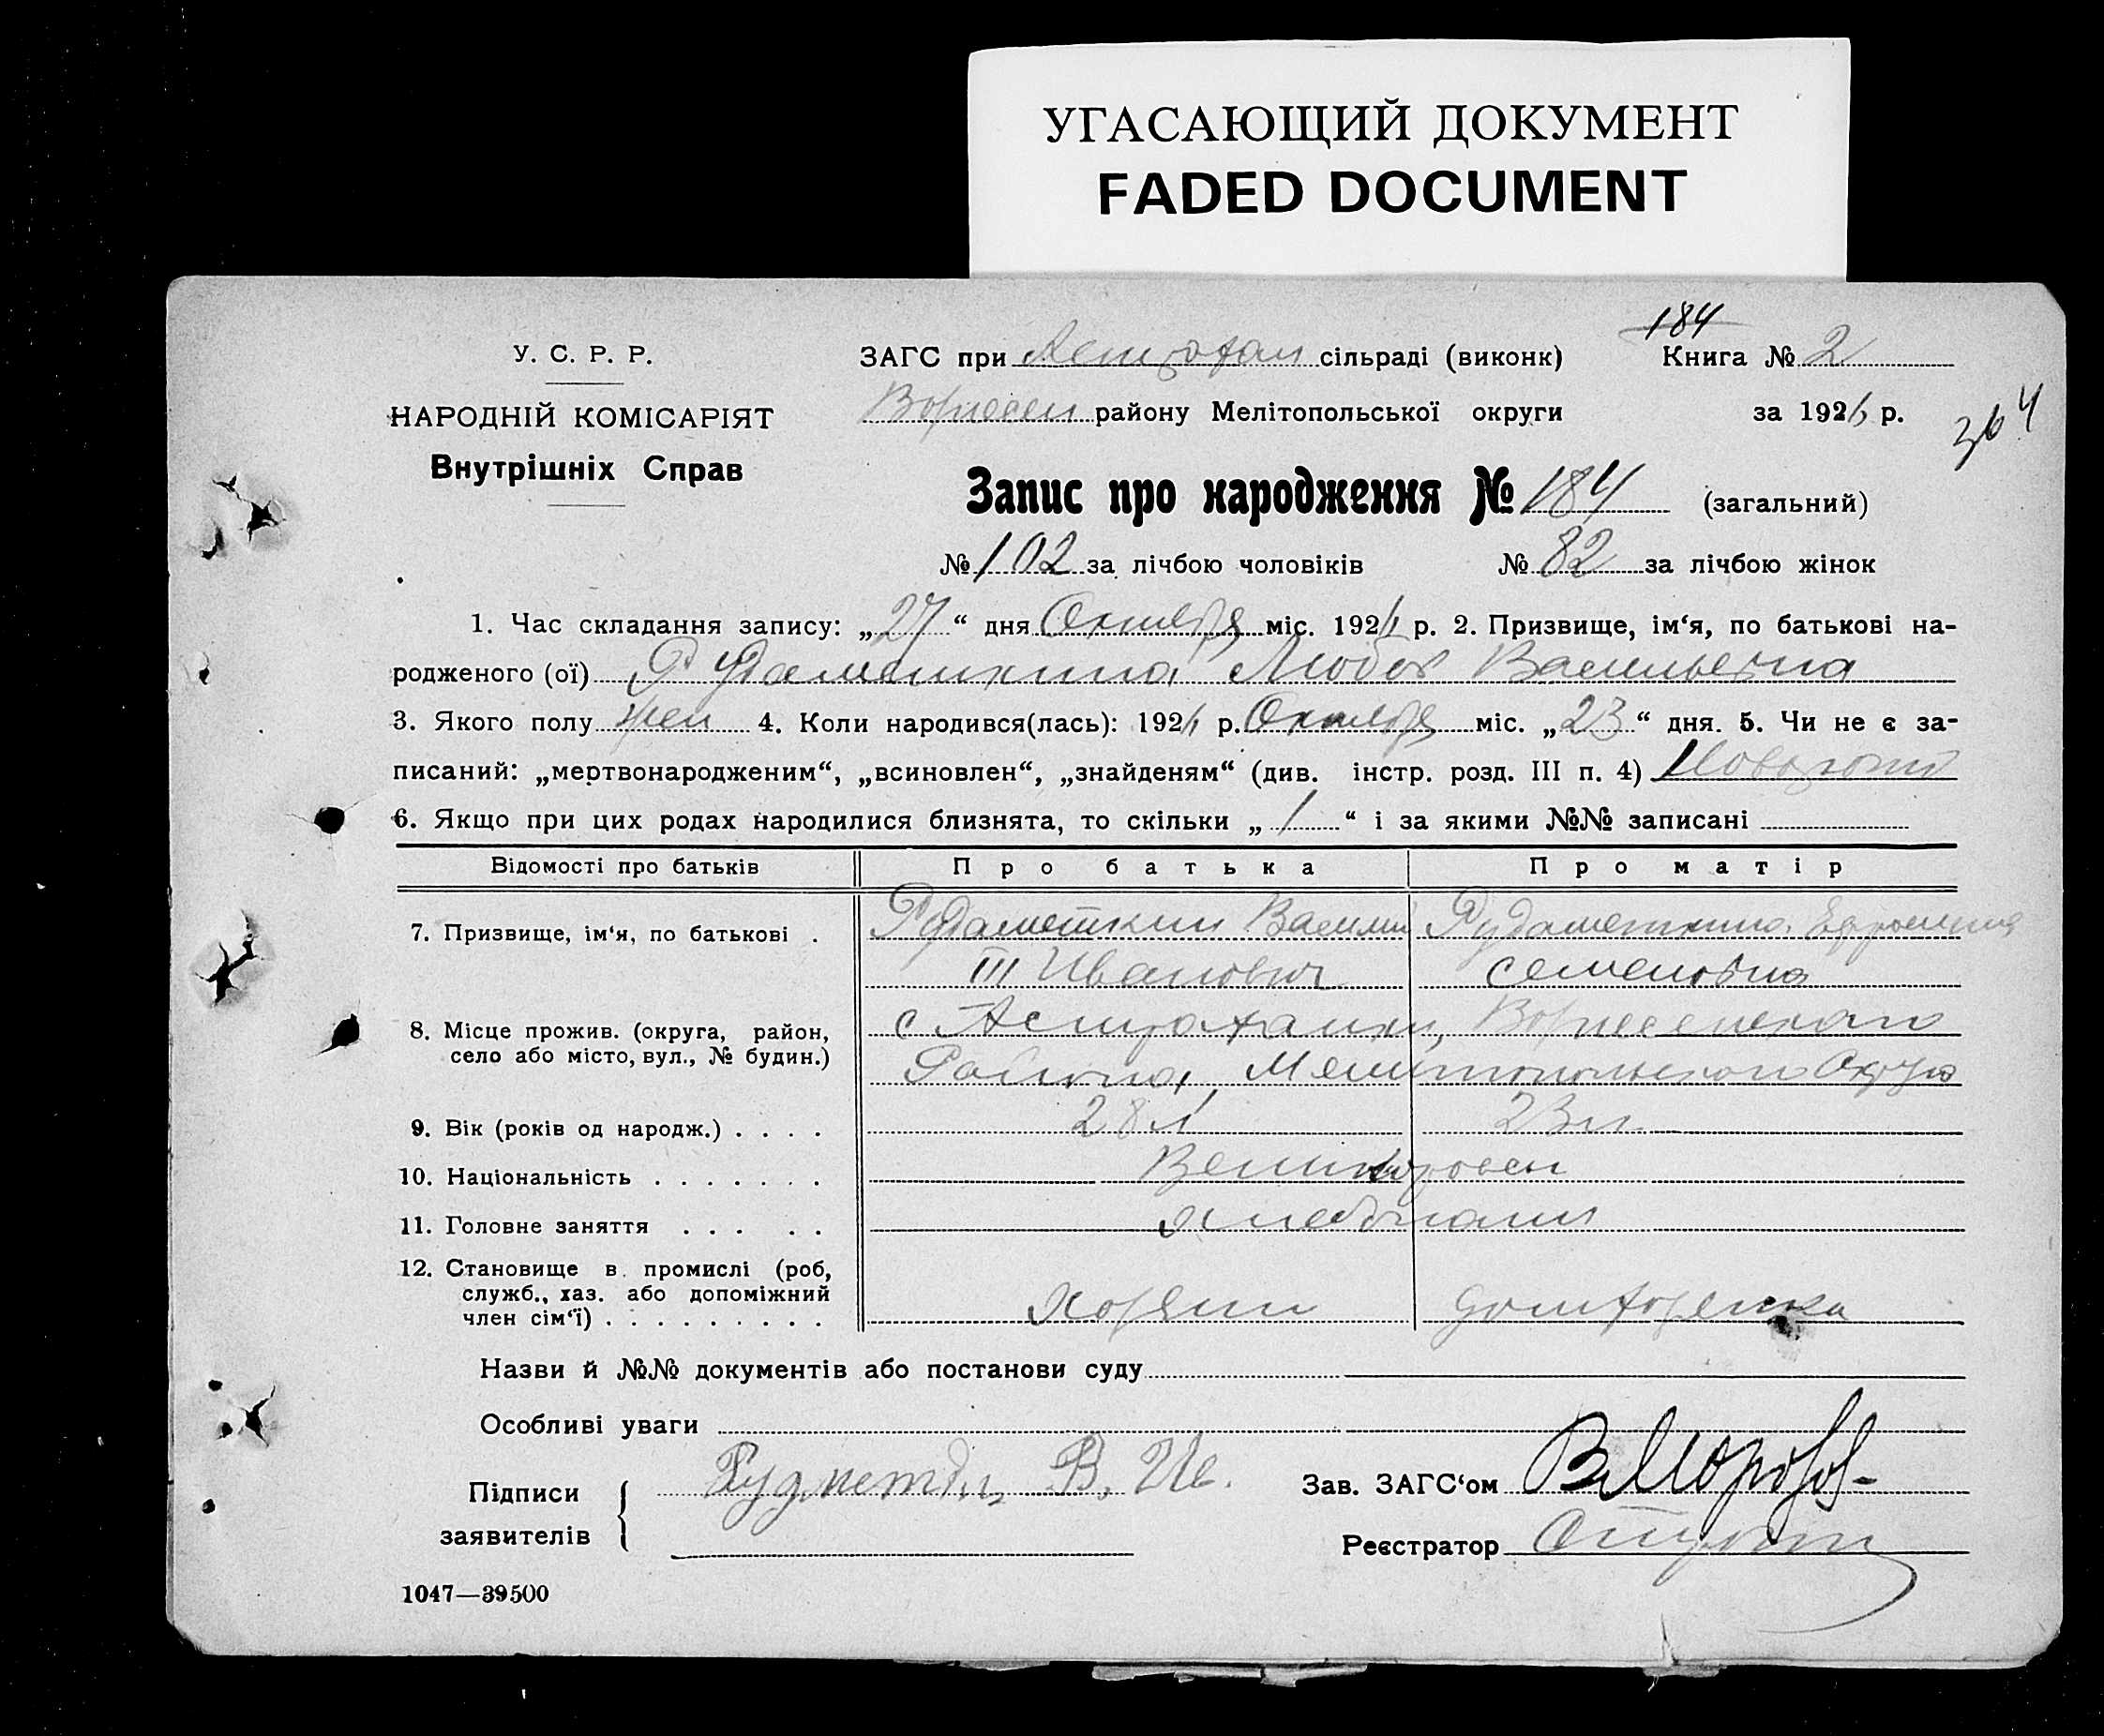 УГАСАЮЩИЙ ДОКУМЕНТ
FADED DOCUMENT
184
У. С. Р. Р.
ЗАГС при Астрахан сільраді (виконк)
Книга № 2
НАРОДНІЙ КОМІСАРІЯТ
Вознесен району Мелітопольської округи
за 1926 р.
364
Внутрішніх Справ
Запис про народження № 184 (загальний)
№ 102 за лічбою чоловіків № 82 за лічбою жінок
1. Час складання запису: „27“ дня Октября міс. 1926 р. 2. Призвище, ім‘я, по батькові на-
родженого (ої) Рудаметкина Любов Васильевна
3. Якого полу жен 4. Коли народився(лась): 1926 р. Октября міс. „23“ дня. 5. Чи не є за-
писаний: „мертвонародженим“, „всиновлен“, „знайденям“ (див. інстр. розд. III п. 4)
6. Якщо при цих родах народилися близнята, то скільки „1“ і за якими №№ записані
Відомості про батьків Про батька Про матір
7. Призвище, ім‘я, по батькові . Рудаметкин Василий Рудаметкина Ефросиния
III Иванович Семеновна
8. Місце прожив. (округа, район, с Астраханки, Вознесенского
село або місто, вул., № будин.) Района, Мелитопольского Округа
9. Вік (років од народж.) . . . . 28 л 23 л
10. Національність . . . . . . . Великоросы
11. Головне заняття . . . . . Хлебопаш
12. Становище в промислі (роб,
служб., хаз. або допоміжний
член сім‘ї) . . . . . . . . . Хозяин домхозяйка
Назви й №№ документів або постанови суду
Особливі уваги
Підписи
заявителів В. Ив.
Зав. ЗАГС‘ом В Морозов
Реєстратор
1047—39500